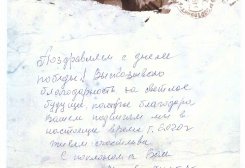 Поздравляем с днем
победы! Выражаем
благодарность за светлое
будущее, которое благодаря
вашем подвигам мы в
настоящее время г. 2020г
живём счастливо.
С поклоном к Вам